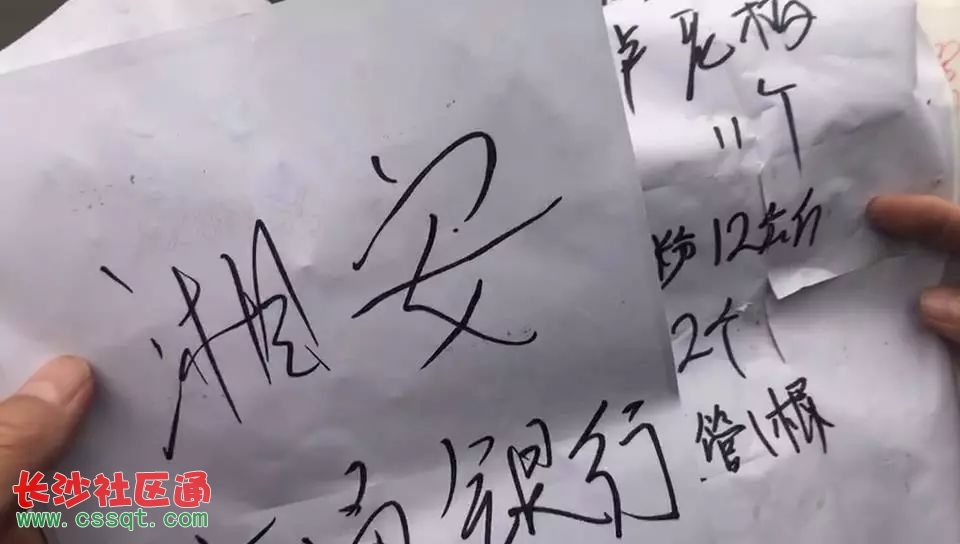 湘安
银行
11个
12公斤
2个
管1根
长沙社区通
www.cssqt.com